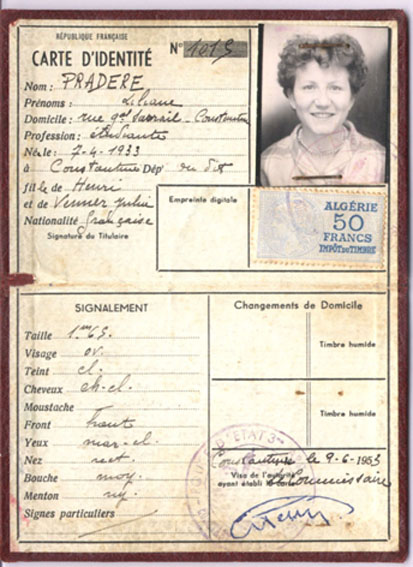 RÉPUBLIQUE FRANÇAISE
CARTE D'IDENTITÉ N° 1015
Nom : PRADERE
Prénoms : Liliane
Domicile : rue gal Sarrail - Constantine
Profession : étudiante
Née le : 7-4-1933
à Constantine Dép' du dit
fille de Henri
et de Venner
Nationalité française
Signature du Titulaire
Empreinte digitale
ALGÉRIE
50
FRANCS
IMPÔT DU TIMBRE
SIGNALEMENT
Taille 1m65
Visage ov.
Teint cl.
Cheveux ch-cl.
Moustache
Front haut
Yeux mar-cl.
Nez rect.
Bouche moy.
Menton
Signes particuliers
Changements de Domicile
Timbre humide
Timbre humide
Constantine le 9-6-1953
Visa de l'autorité
ayant établi la carte
Le Commissaire
D'ETAT